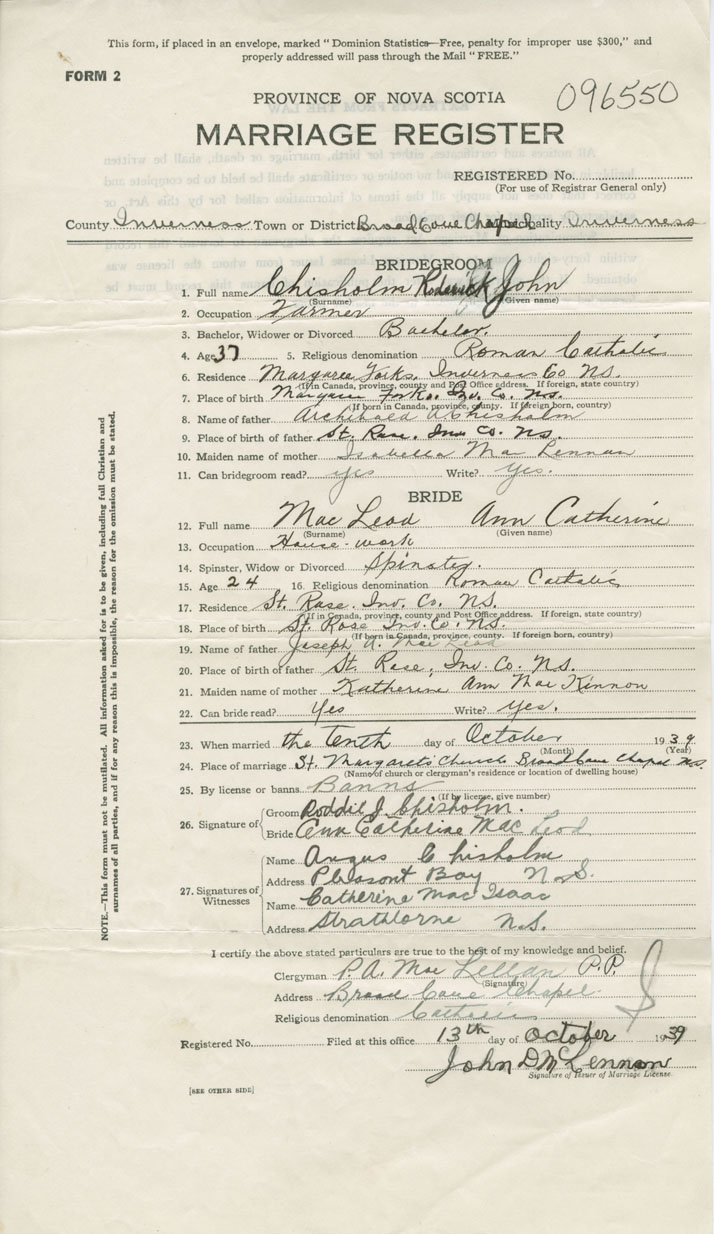 This form, if placed in an envelope, marked "Dominion Statistics—Free, penalty for improper use $300," and
properly addressed will pass through the Mail "FREE."
FORM 2
096550
PROVINCE OF NOVA SCOTIA
MARRIAGE REGISTER
REGISTERED No.
(For use of Registrar General only)
County Inverness Town or District Broad Cove Chapel Municipality Inverness
BRIDEGROOM
1. Full name Chisholm Roderick John
(Surname) (Given name)
2. Occupation Farmer
3. Bachelor, Widower or Divorced Bachelor.
4. Age 37 5. Religious denomination Roman Catholic
6. Residence Margaree Forks, Inverness Co NS.
(If in Canada, province, county and Post Office address. If foreign, state country)
7. Place of birth Margaree Forks. Inv. Co. NS.
(If born in Canada, province, county. If foreign born, country)
8. Name of father Archibald A Chisholm
9. Place of birth of father St. Rose. Inv Co. NS.
10. Maiden name of mother Isabella Mac Lennan
11. Can bridegroom read? yes Write? yes.
BRIDE
12. Full name Mac Leod Ann Catherine
(Surname) (Given name)
13. Occupation House-work
14. Spinster, Widow or Divorced Spinster.
15. Age 24 16. Religious denomination Roman Catholic
17. Residence St. Rose. Inv. Co. N.S.
(If in Canada, province, county and Post Office address. If foreign, state country)
18. Place of birth St. Rose Inv. Co. N.S.
(If born in Canada, province, county. If foreign born, country)
19. Name of father Joseph A. Mac Leod
20. Place of birth of father St. Rose, Inv. Co. NS.
21. Maiden name of mother Katherine Ann Mac Kinnon
22. Can bride read? Yes Write? yes.
23. When married the tenth day of October 1939
(Month) (Year)
24. Place of marriage St. Margarets Church Broad Cove Chapel N.S.
(Name of church or clergyman's residence or location of dwelling house)
25. By license or banns Banns
(If by license, give number)
26. Signature of Groom Roddie J Chisholm.
Bride Ann Catherine Mac Leod
27. Signatures of Witnesses
Name Angus Chisholm
Address Pleasont Bay N.S.
Name Catherine Mac Isaac
Address Strathlorne N.S.
I certify the above stated particulars are true to the best of my knowledge and belief.
Clergyman P.A. Mac Lellan P.P.
(Signature)
Address Broad Cove Chapel
Religious denomination Catholic
Registered No. Filed at this office 13th day of October 1939
John D McLennan
Signature of Issuer of Marriage License
[SEE OTHER SIDE]
NOTE.—This form must not be mutilated. All information asked for is to be given, including full Christian and
surnames of all parties, and if for any reason this is impossible, the reason for the omission must be stated.